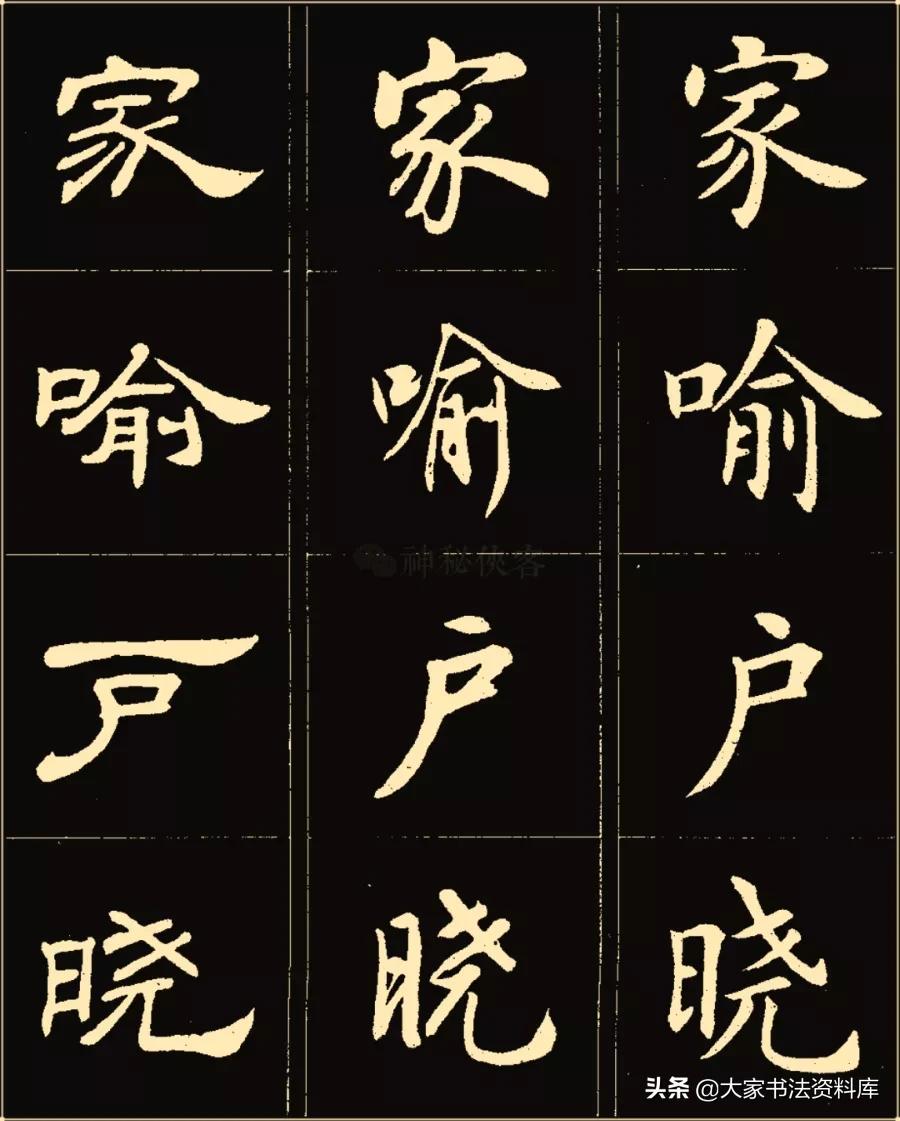 家 家 家
喻 喻 喻
神秘侠客
户 户 户
晓 晓 晓
头条 @大家书法资料库